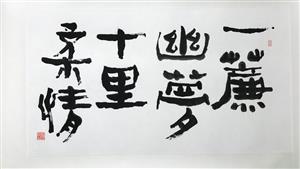 一簾
幽夢
十里
柔情